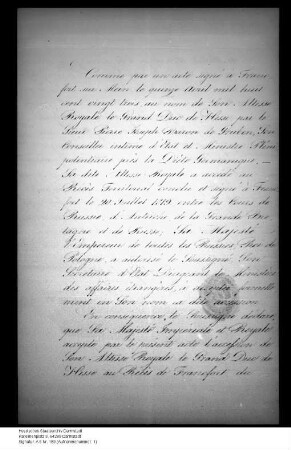 Comme par un acte signé à Franc-
fort sur Mein le quinze Avril mil huit
cent vingt trois au nom de Son Altesse
Royale le Grand Duc de Hesse par le
Sieur Pierre Joseph Baron de Gruben, Son
Conseiller intime d'Etat et Ministre Pléni-
potentiaire près la Diète Germanique, —
Sa dite Altesse Royale a accédé au
Recès Territorial conclu et signé à Franc-
fort le 20 Juillet 1819 entre les Cours de
Prusse, d'Autriche, de la Grande Bre-
tagne et de Russie, Sa Majesté
l'Empereur de toutes les Russies, Roi de
Pologne, a autorisé le Soussigné Son
Secrétaire d'Etat Dirigeant le Ministère
des affaires étrangères, à accepter formelle-
ment en Son nom la dite accession.
En conséquence, le Soussigné déclare,
que Sa Majesté Impériale et Royale
accepte par le présent acte l'accession de
Son Altesse Royale le Grand Duc de
Hesse au Recès de Francfort du
Hessisches Staatsarchiv Darmstadt